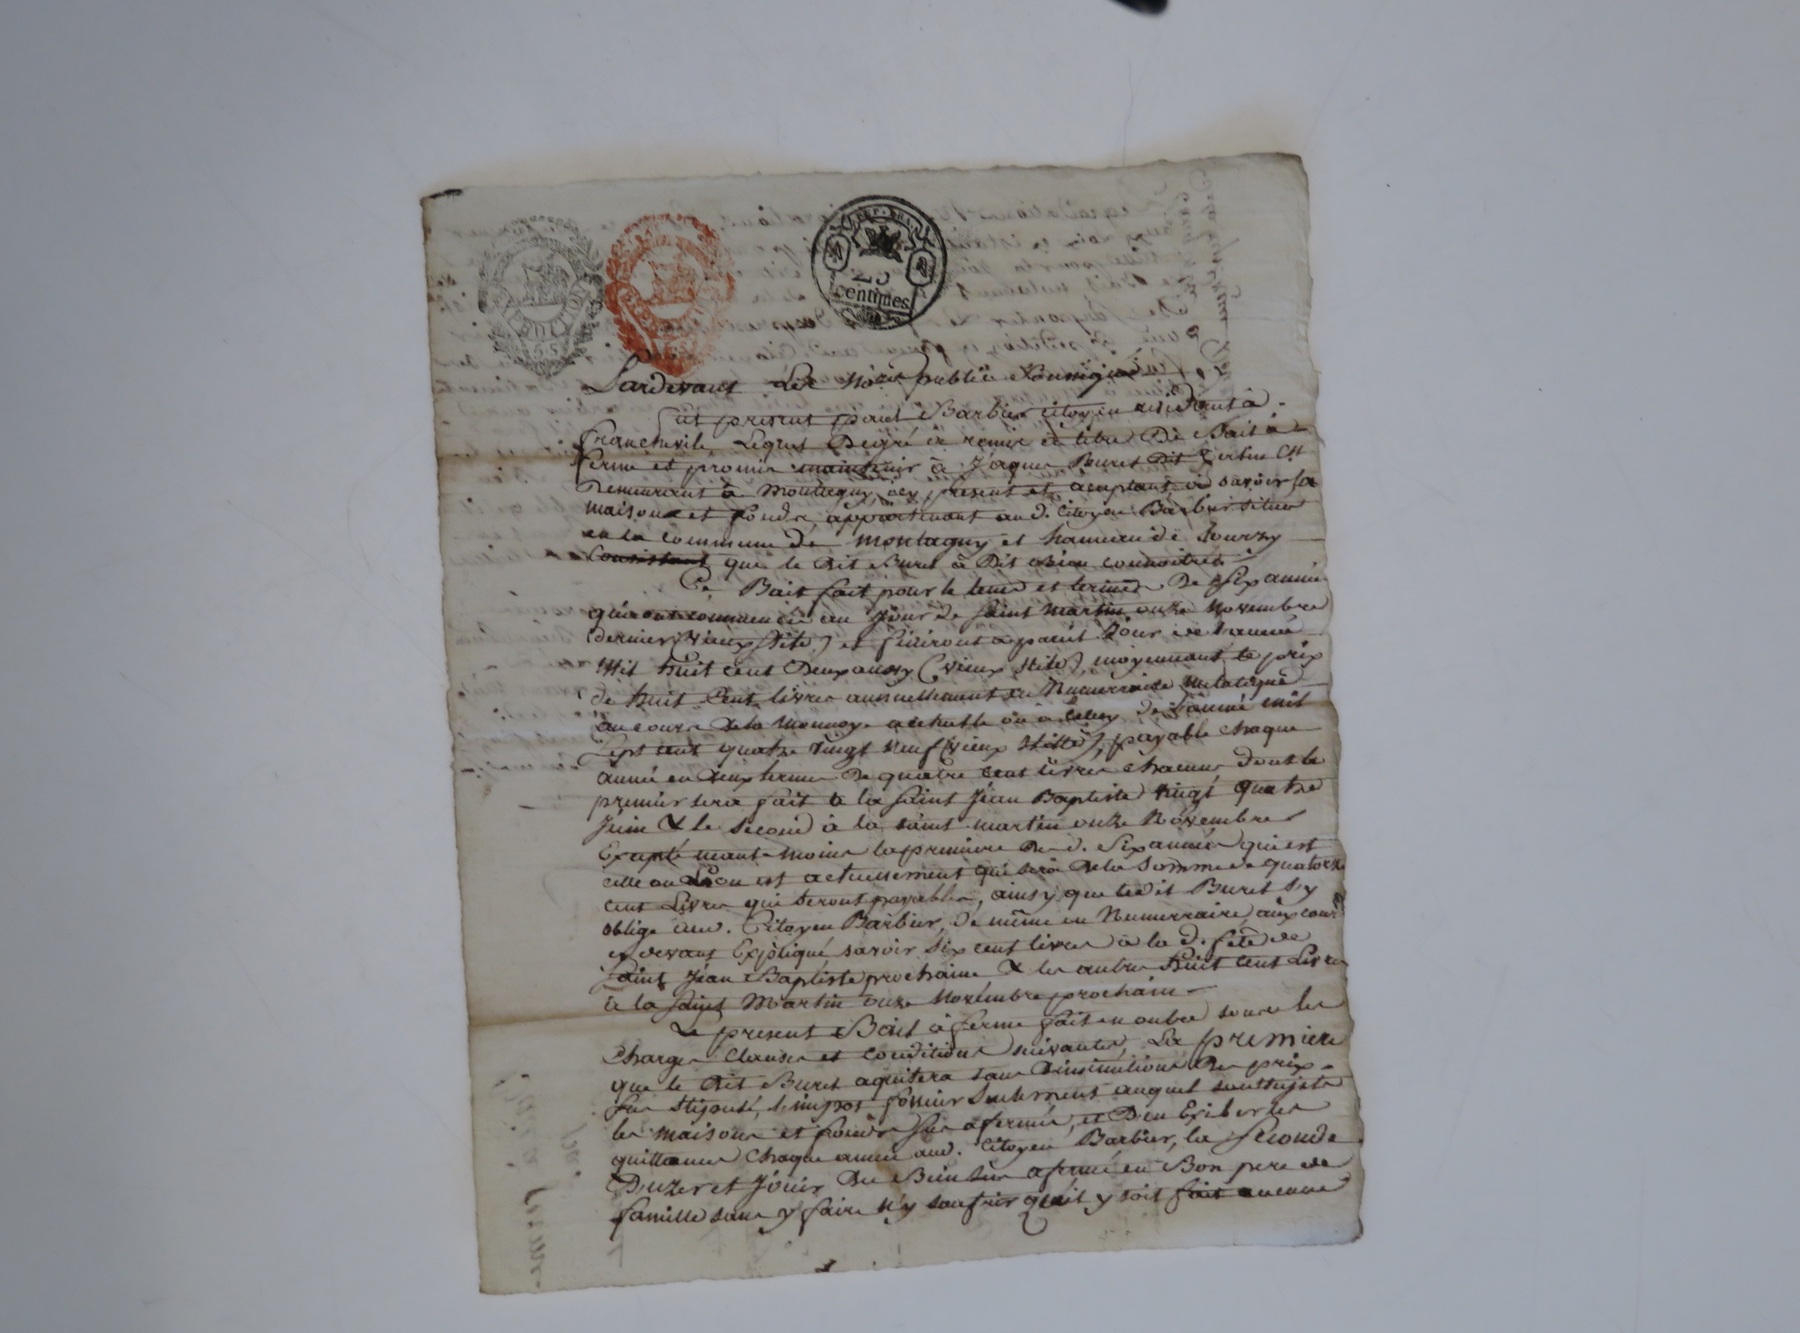 REP. FRA
25
centimes
Pardevant Les Not.res publics soussignés
Est present paul Barbier citoyen residant à
francheville, Lequel De gré a remis et titre De Bail à
ferme et promis maintenir à Jaques Buret dit
Demeurant à Montagny, icy present et acceptant savoir sa
maison et fonds, appartenant aud. Citoyen Barbier situés
en la commune De montagny et hameau de Sourzy
Consistant que le dit Buret à Dit Bien connoitre
Ce Bail fait pour le tems et terme De Six années
qui ont commencée au Jour de saint Martin onze Novembre
dernier (vieux stile) et finiront a pareil Jour de l'année
Mil huit cent Deux aussy (vieux stile), moyennant le prix
de huit Cent livres annuellement en Numerraire metalique
au cours de la monnoye actuelle ou à celuy de l'année mil
sept cent quatre vingt neuf (vieux stille), payable chaque
année en deux termes De quatre cent livres chacuns dont le
premier sera fait à la saint Jean Baptiste vingt quatre
Juin & le second à la saint martin onze Novembre
Excepté neant-moins la premiere Des d. Six années qui est
celle ou L'on est actuellement qui sera de la Somme de quatorze
cent Livres qui seront payables, ainsy que ledit Buret s'y
oblige aud. Citoyen Barbier, de même en Numerraire, aux cours
cy devant Expliqué savoir six cent livres à la d. fête de
saint Jean Baptiste prochaine & les autres huit cent Livres
à la saint Martin onze Novembre prochain
Le present Bail à ferme fait en outre sous les
charges clauses et conditions suivantes, La premiere
que le dit Buret aquitera sans diminution Du prix
sus stipulé, l'impot foncier seulement auquel sont sujets
les maisons et fonds sus afermés, et D'en Exiber les
quittances chaque année aud. Citoyen Barbier, la seconde
D'uzer et Jouir Du Bien sus afermé en Bon pere de
famille sans y faire N'y soufrir qu'il y soit fait aucune